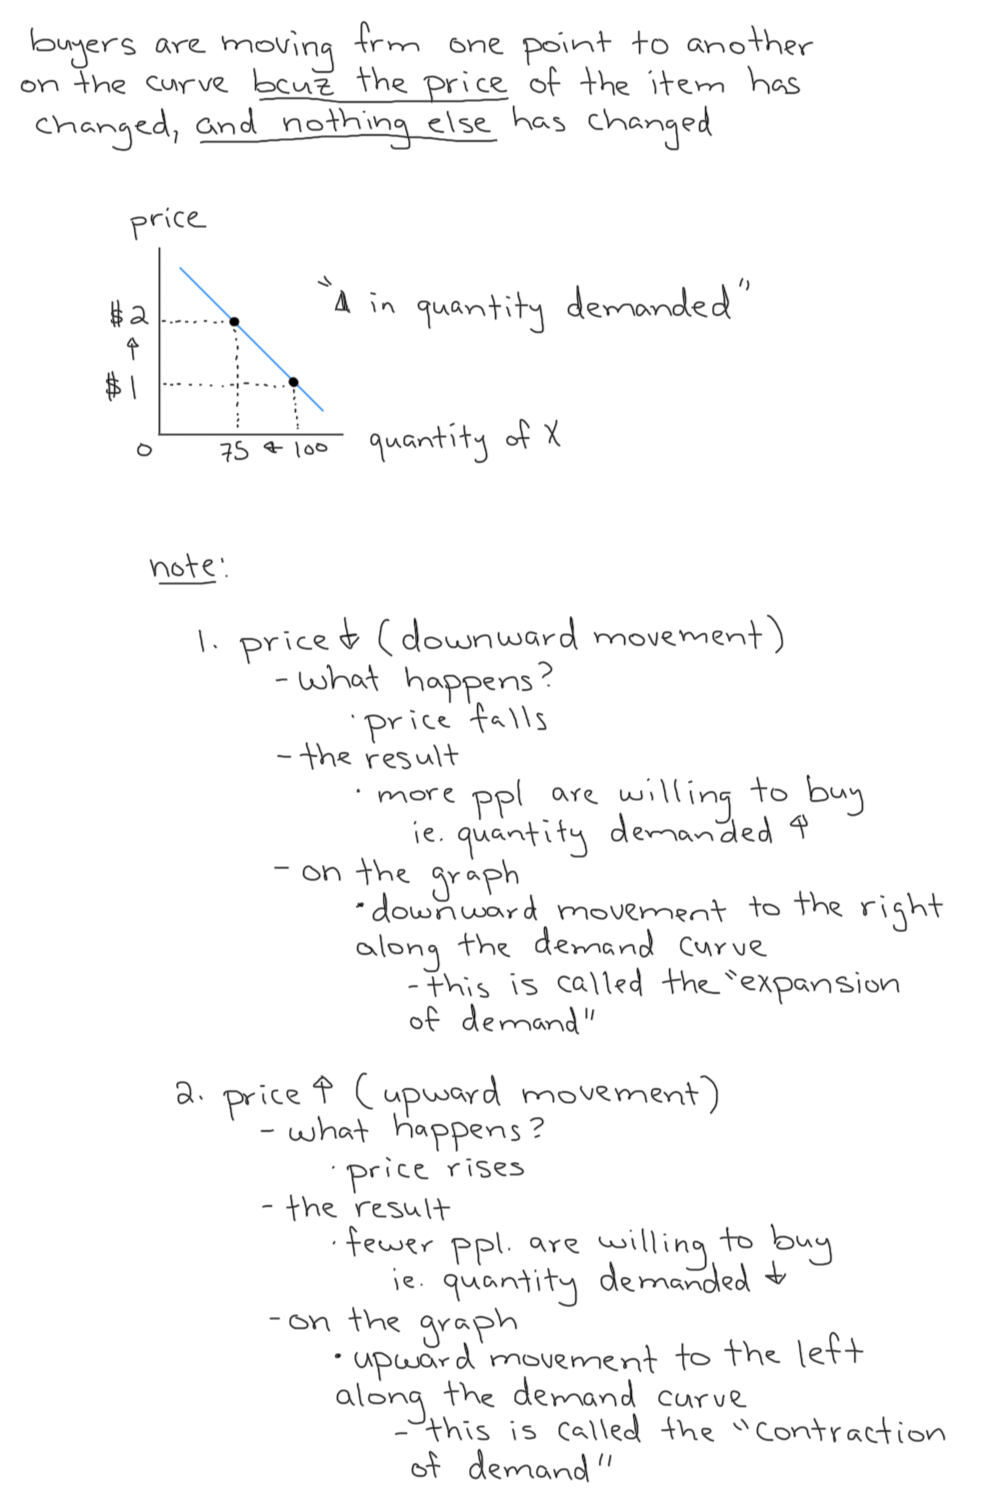 buyers are moving frm one point to another
on the curve bcuz the price of the item has
changed, and nothing else has changed
price
"Δ in quantity demanded"
$2
↑
$1
0
75 ← 100
quantity of X
note:
1. price ↓ (downward movement)
- what happens?
· price falls
- the result
· more ppl are willing to buy
ie. quantity demanded ↑
- on the graph
· downward movement to the right
along the demand curve
- this is called the "expansion
of demand"
2. price ↑ (upward movement)
- what happens?
· price rises
- the result
· fewer ppl. are willing to buy
ie. quantity demanded ↓
- on the graph
· upward movement to the left
along the demand curve
- this is called the "contraction
of demand"